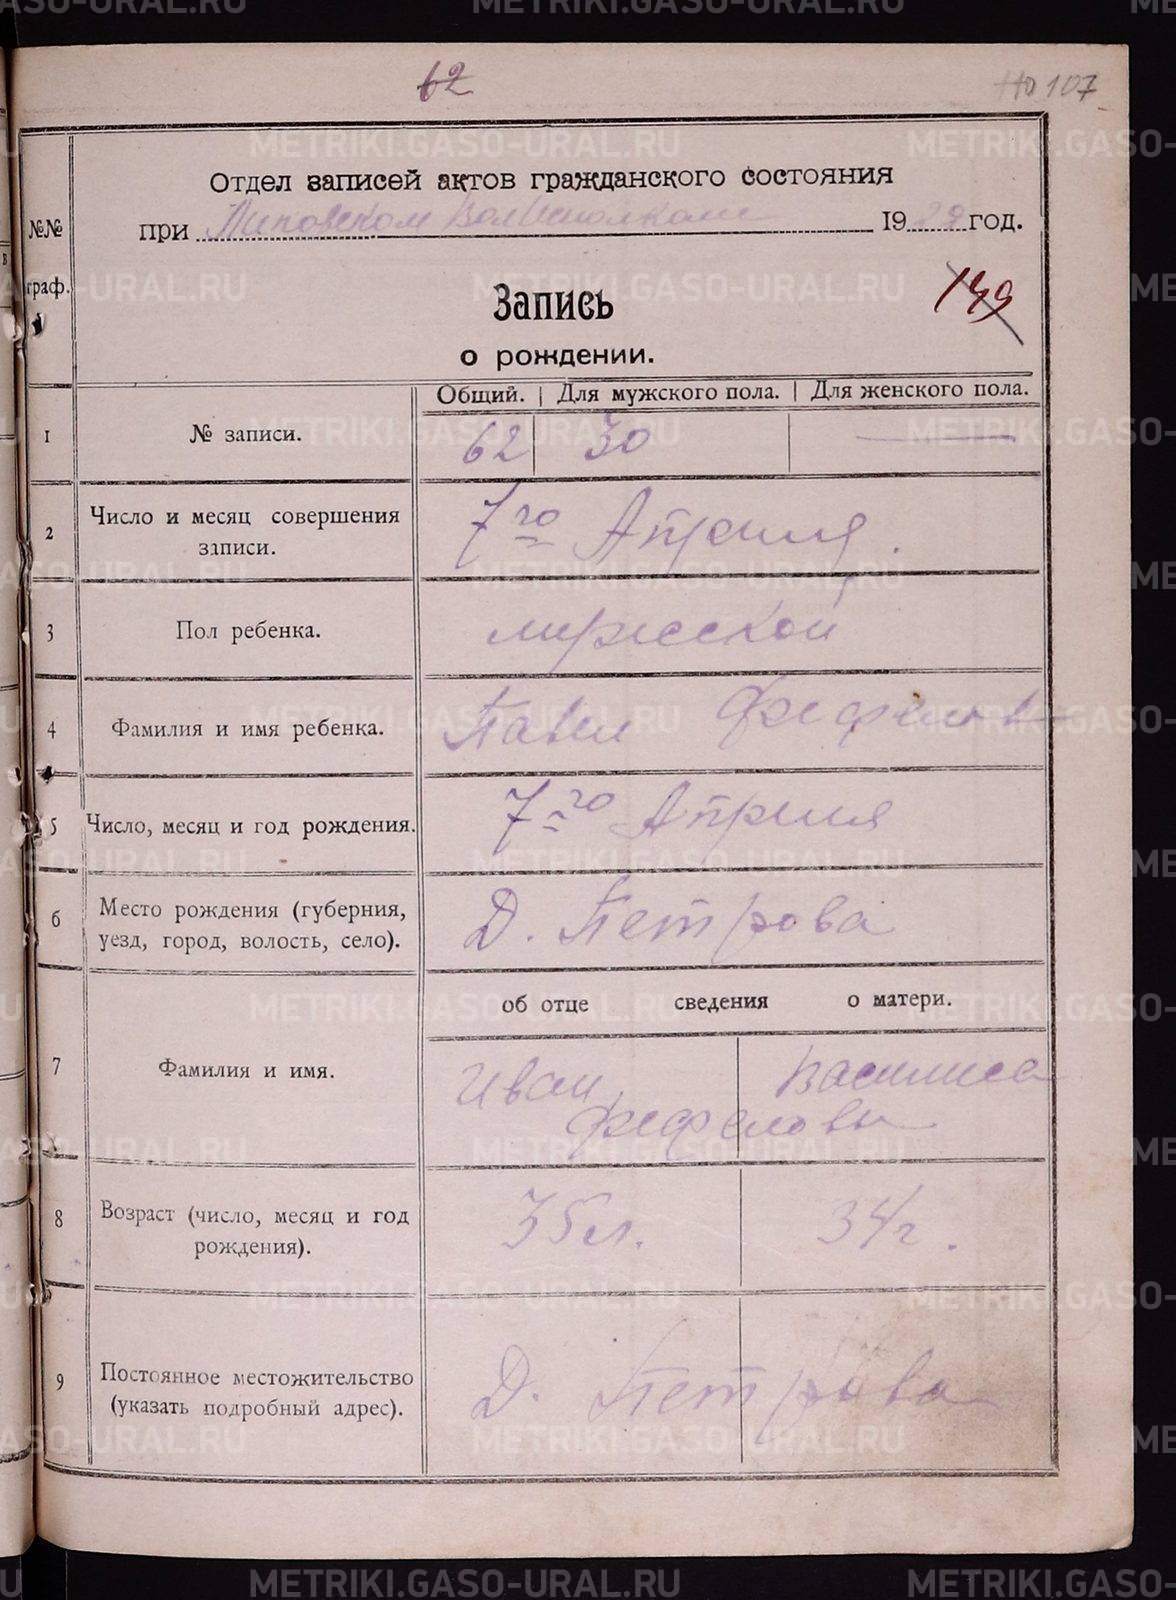 METRIKI.GASO-URAL.RU
62
107
METRIKI.GASO-URAL.RU
Отдел записей актов гражданского состояния
при Липовском Волисполкоме 19 год.
№№
граф.
149
Запись
о рождении.
Общий. | Для мужского пола. | Для женского пола.
1 № записи. 62 30 —
2 Число и месяц совершения
записи. 7го Апреля.
3 Пол ребенка. мужской
4 Фамилия и имя ребенка. Павел Фефелов
5 Число, месяц и год рождения. 7го Апреля
6 Место рождения (губерния,
уезд, город, волость, село). Д. Петрова
об отце сведения о матери.
7 Фамилия и имя. Иван Василиса
Фефеловы
8 Возраст (число, месяц и год
рождения). 35 л. 34 г.
9 Постоянное местожительство
(указать подробный адрес). Д. Петрова
METRIKI.GASO-URAL.RU